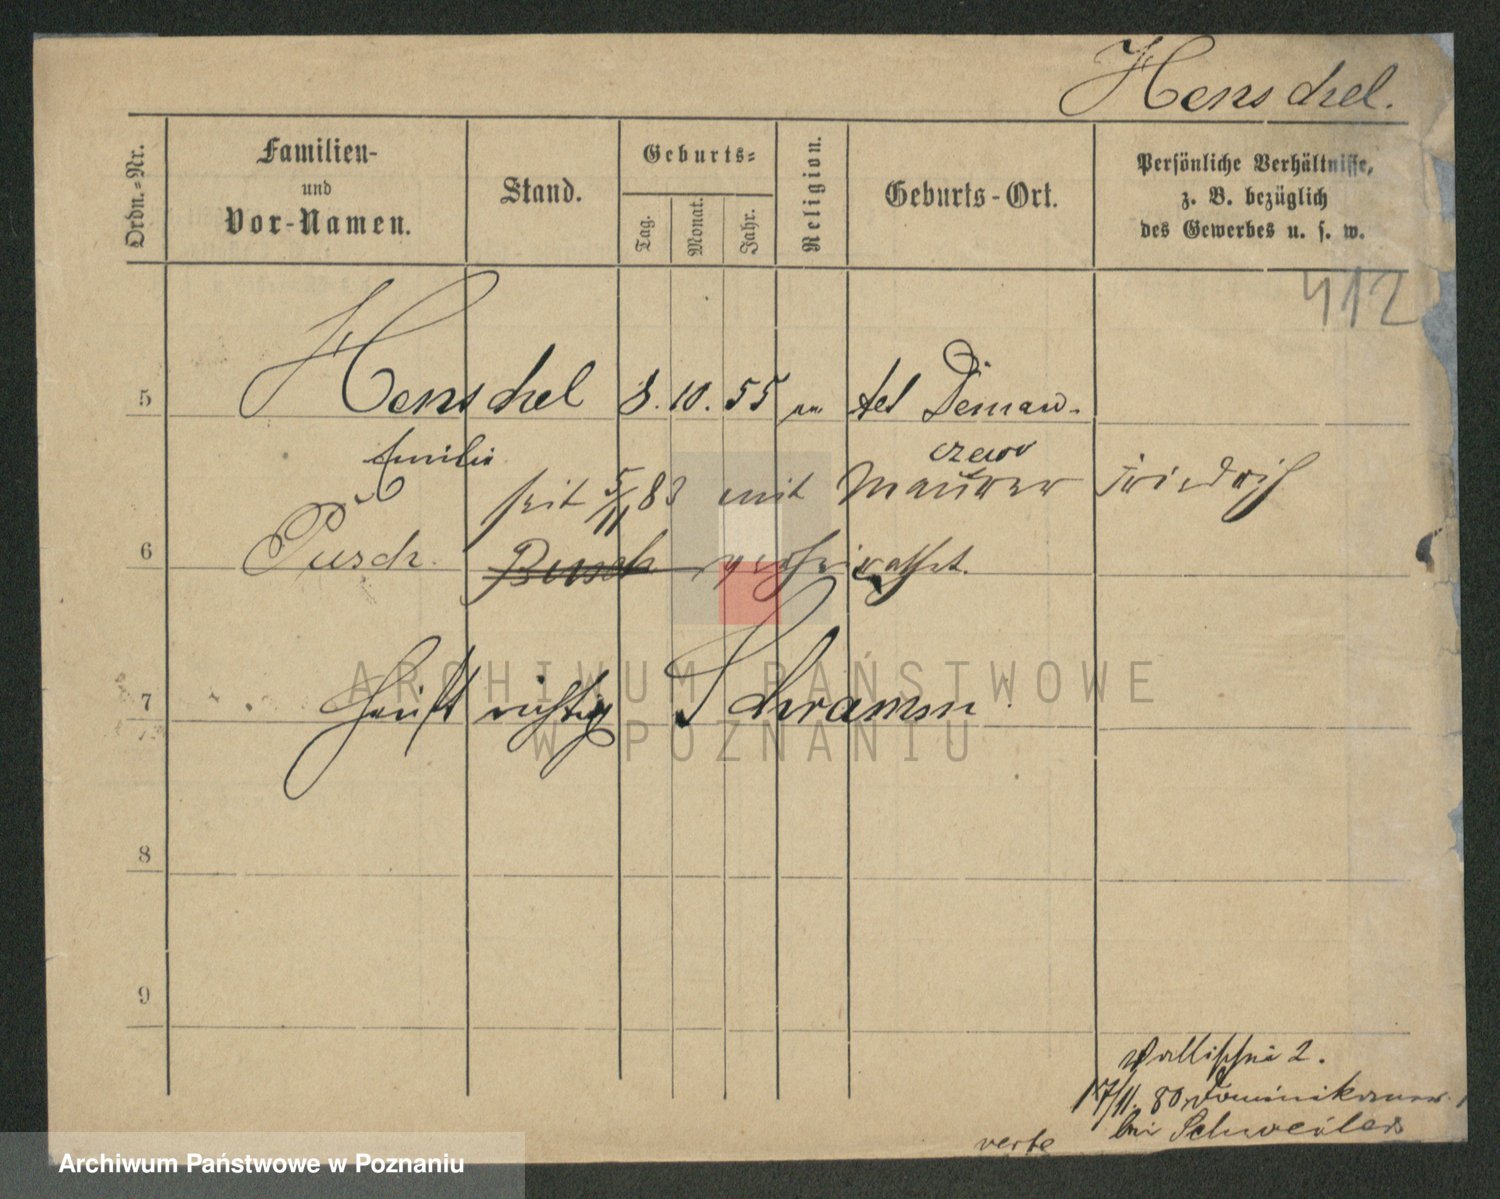 Henschel.
Ordn.-Nr.
Familien-
und
Vor-Namen.
Stand.
Geburts-
Tag.
Monat.
Jahr.
Religion.
Geburts-Ort.
Persönliche Verhältnisse,
z. B. bezüglich
des Gewerbes u. s. w.
412
5 Henschel 8. 10. 55
Emilie
czewo
seit 5/11 83 mit Maurer Friedrich
6 Pusch. Busch verheirathet.
ARCHIWUM PAŃSTWOWE
W POZNANIU
7 heißt richtig Schramm
8
9
Wallischei 2.
17/11. 80 Dominikaner
bei
verte
Archiwum Państwowe w Poznaniu